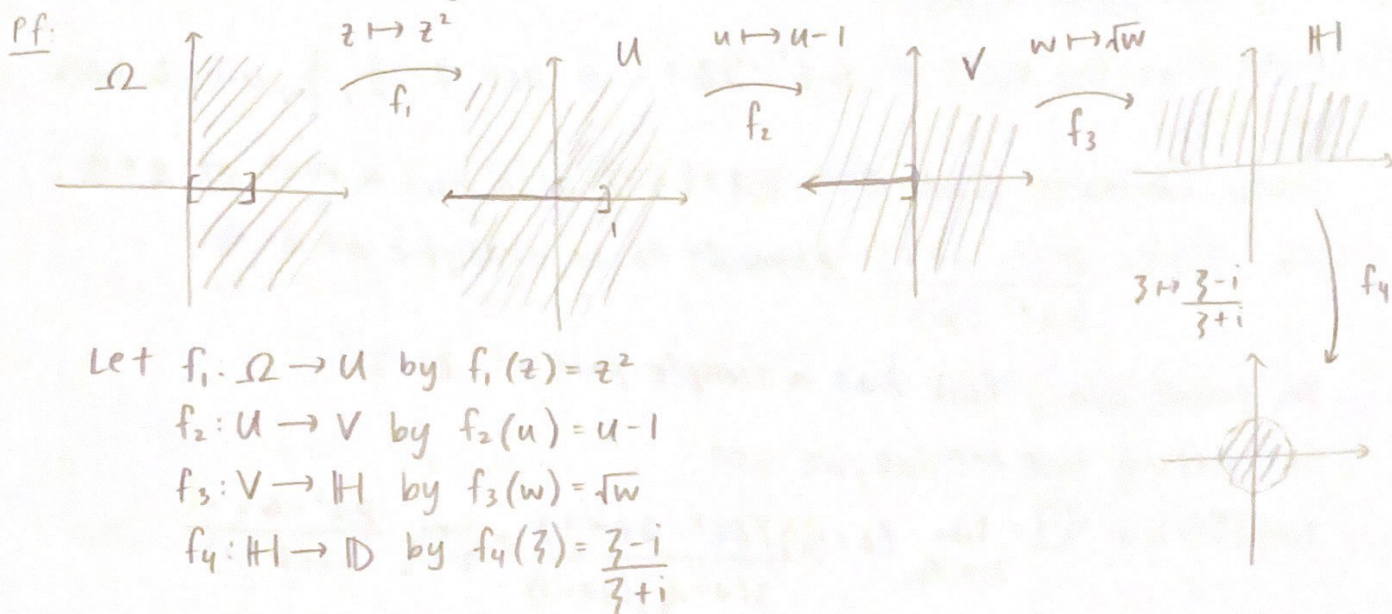 Pf:
Ω z ↦ z² f₁ U u ↦ u-1 f₂ V w ↦ √w f₃ ℍ
1
ξ ↦ (ξ-i)/(ξ+i) f₄
Let f₁: Ω → U by f₁(z) = z²
f₂: U → V by f₂(u) = u-1
f₃: V → ℍ by f₃(w) = √w
f₄: ℍ → 𝔻 by f₄(ξ) = (ξ-i)/(ξ+i)